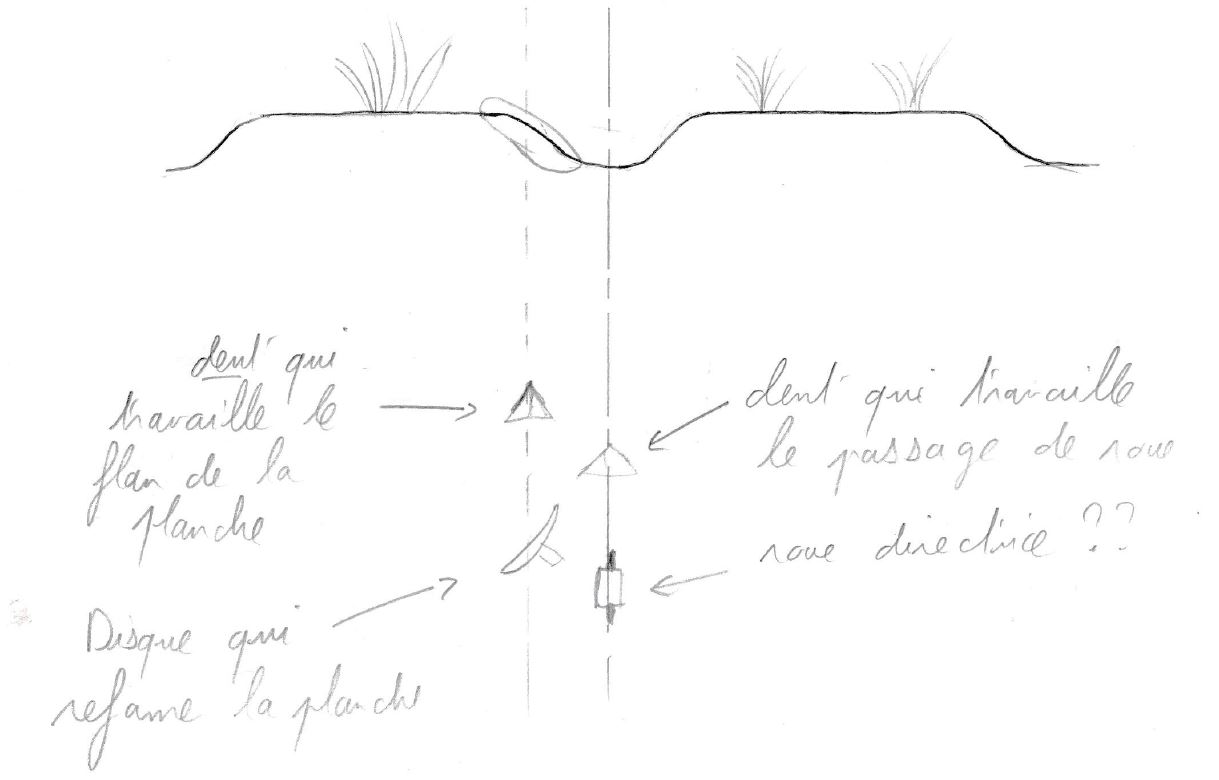 dent qui
travaille le
flan de la
planche
dent qui travaille
le passage de roue
roue directrice ??
Disque qui
reforme la planche